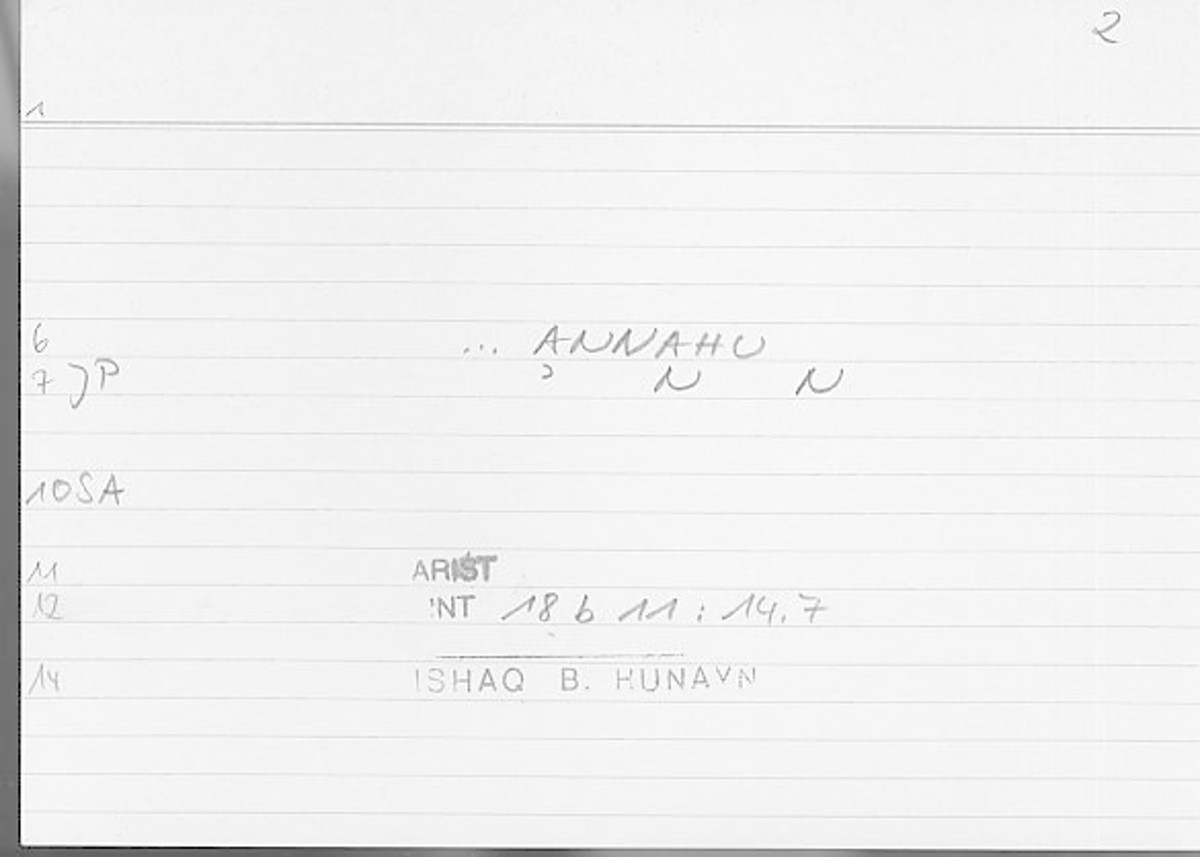 2
1
6 ... ANNAHU
7 JP ɔ N N
10SA
11 ARIST
12 INT 18 b 11 : 14.7
14 ISHAQ B. HUNAYN